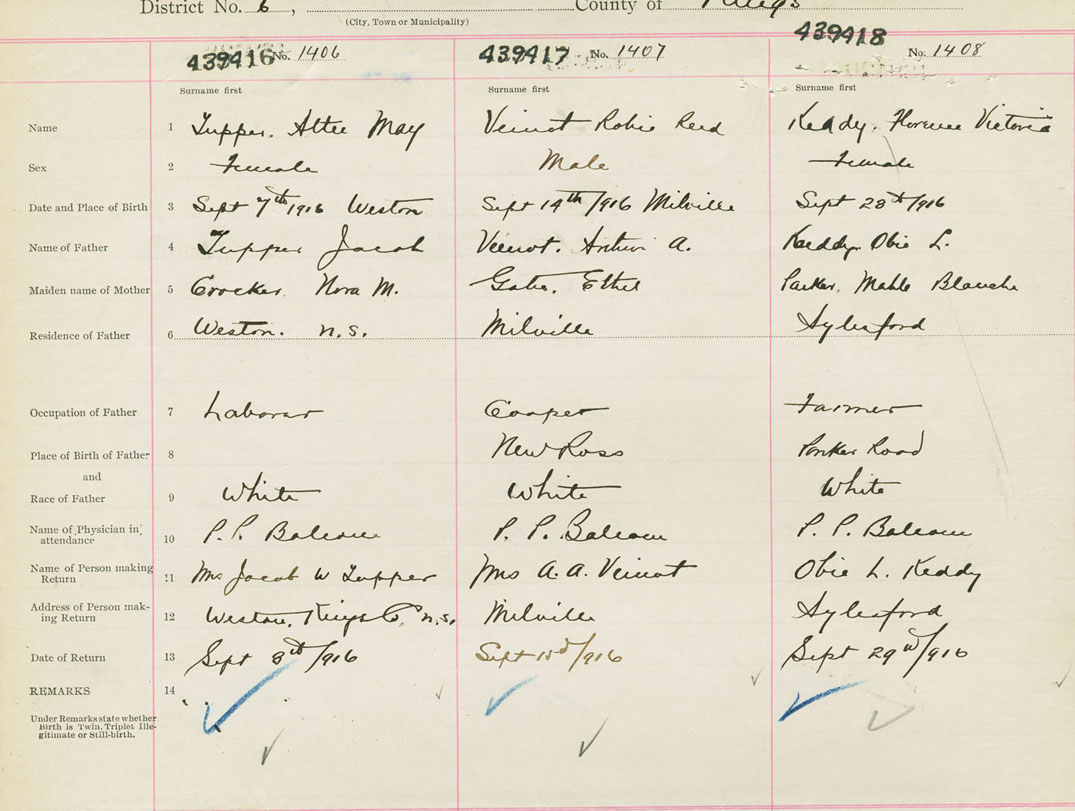 District No. 6, County of Kings
(City, Town or Municipality)
439416 No. 1406 439417 No. 1407 439418 No. 1408
Surname first Surname first Surname first
Name 1 Tupper. May Veinot Robie Reed Keddy. Florence Victoria
Sex 2 Female Male Female
Date and Place of Birth 3 Sept 7th 1916 Weston Sept 14th/1916 Milville Sept 28th/1916
Name of Father 4 Tupper Jacob Veinot. Arthur A. Keddy. Obie L.
Maiden name of Mother 5 Crocker. Nora M. Ethel Parker. Mable Blanche
Residence of Father 6 Weston. N.S. Milville Aylesford
Occupation of Father 7 Laborer Cooper Farmer
Place of Birth of Father 8 New Ross Parker Road
and
Race of Father 9 White White White
Name of Physician in
attendance 10 P. P. Balcom P. P. Balcom P. P. Balcom
Name of Person making
Return 11 Mrs Jacob W Tupper Mrs A. A. Veinot Obie L. Keddy
Address of Person mak-
ing Return 12 Weston, Kings Co. N.S. Milville Aylesford
Date of Return 13 Sept 8th/1916 Sept /1916 Sept 29th/1916
REMARKS 14
Under Remarks state whether
Birth is Twin. Triplet Ille-
gitimate or Still-birth.